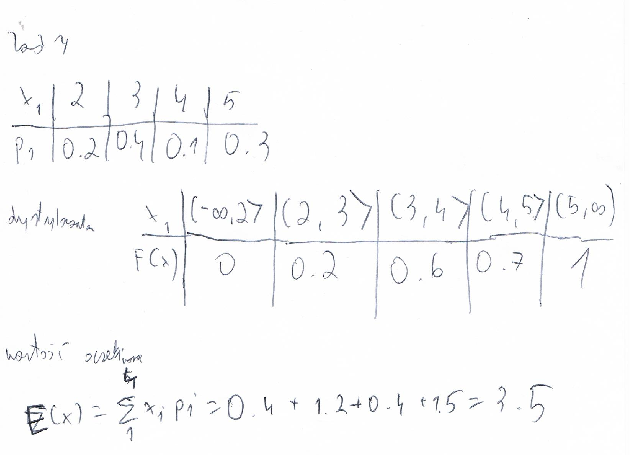 Zad 4
x₁ | 2 | 3 | 4 | 5
p₁ | 0.2 | 0.4 | 0.1 | 0.3
dystrybuanta x₁ | (-∞,2> | (2,3> | (3,4> | (4,5> | (5,∞)
F(x) | 0 | 0.2 | 0.6 | 0.7 | 1
wartość oczekiwana
E(x) = Σ xi pi = 0.4 + 1.2 + 0.4 + 1.5 = 3.5